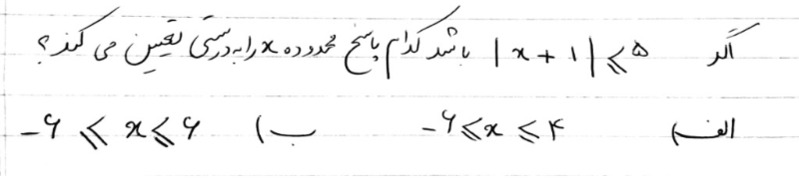 اگر |x + ۱| ⩽ ۵ باشد کدام پاسخ محدوده x را به درستی تعیین می کند؟
الف) -۶ ⩽ x ⩽ ۴ ب) -۶ ⩽ x ⩽ ۶